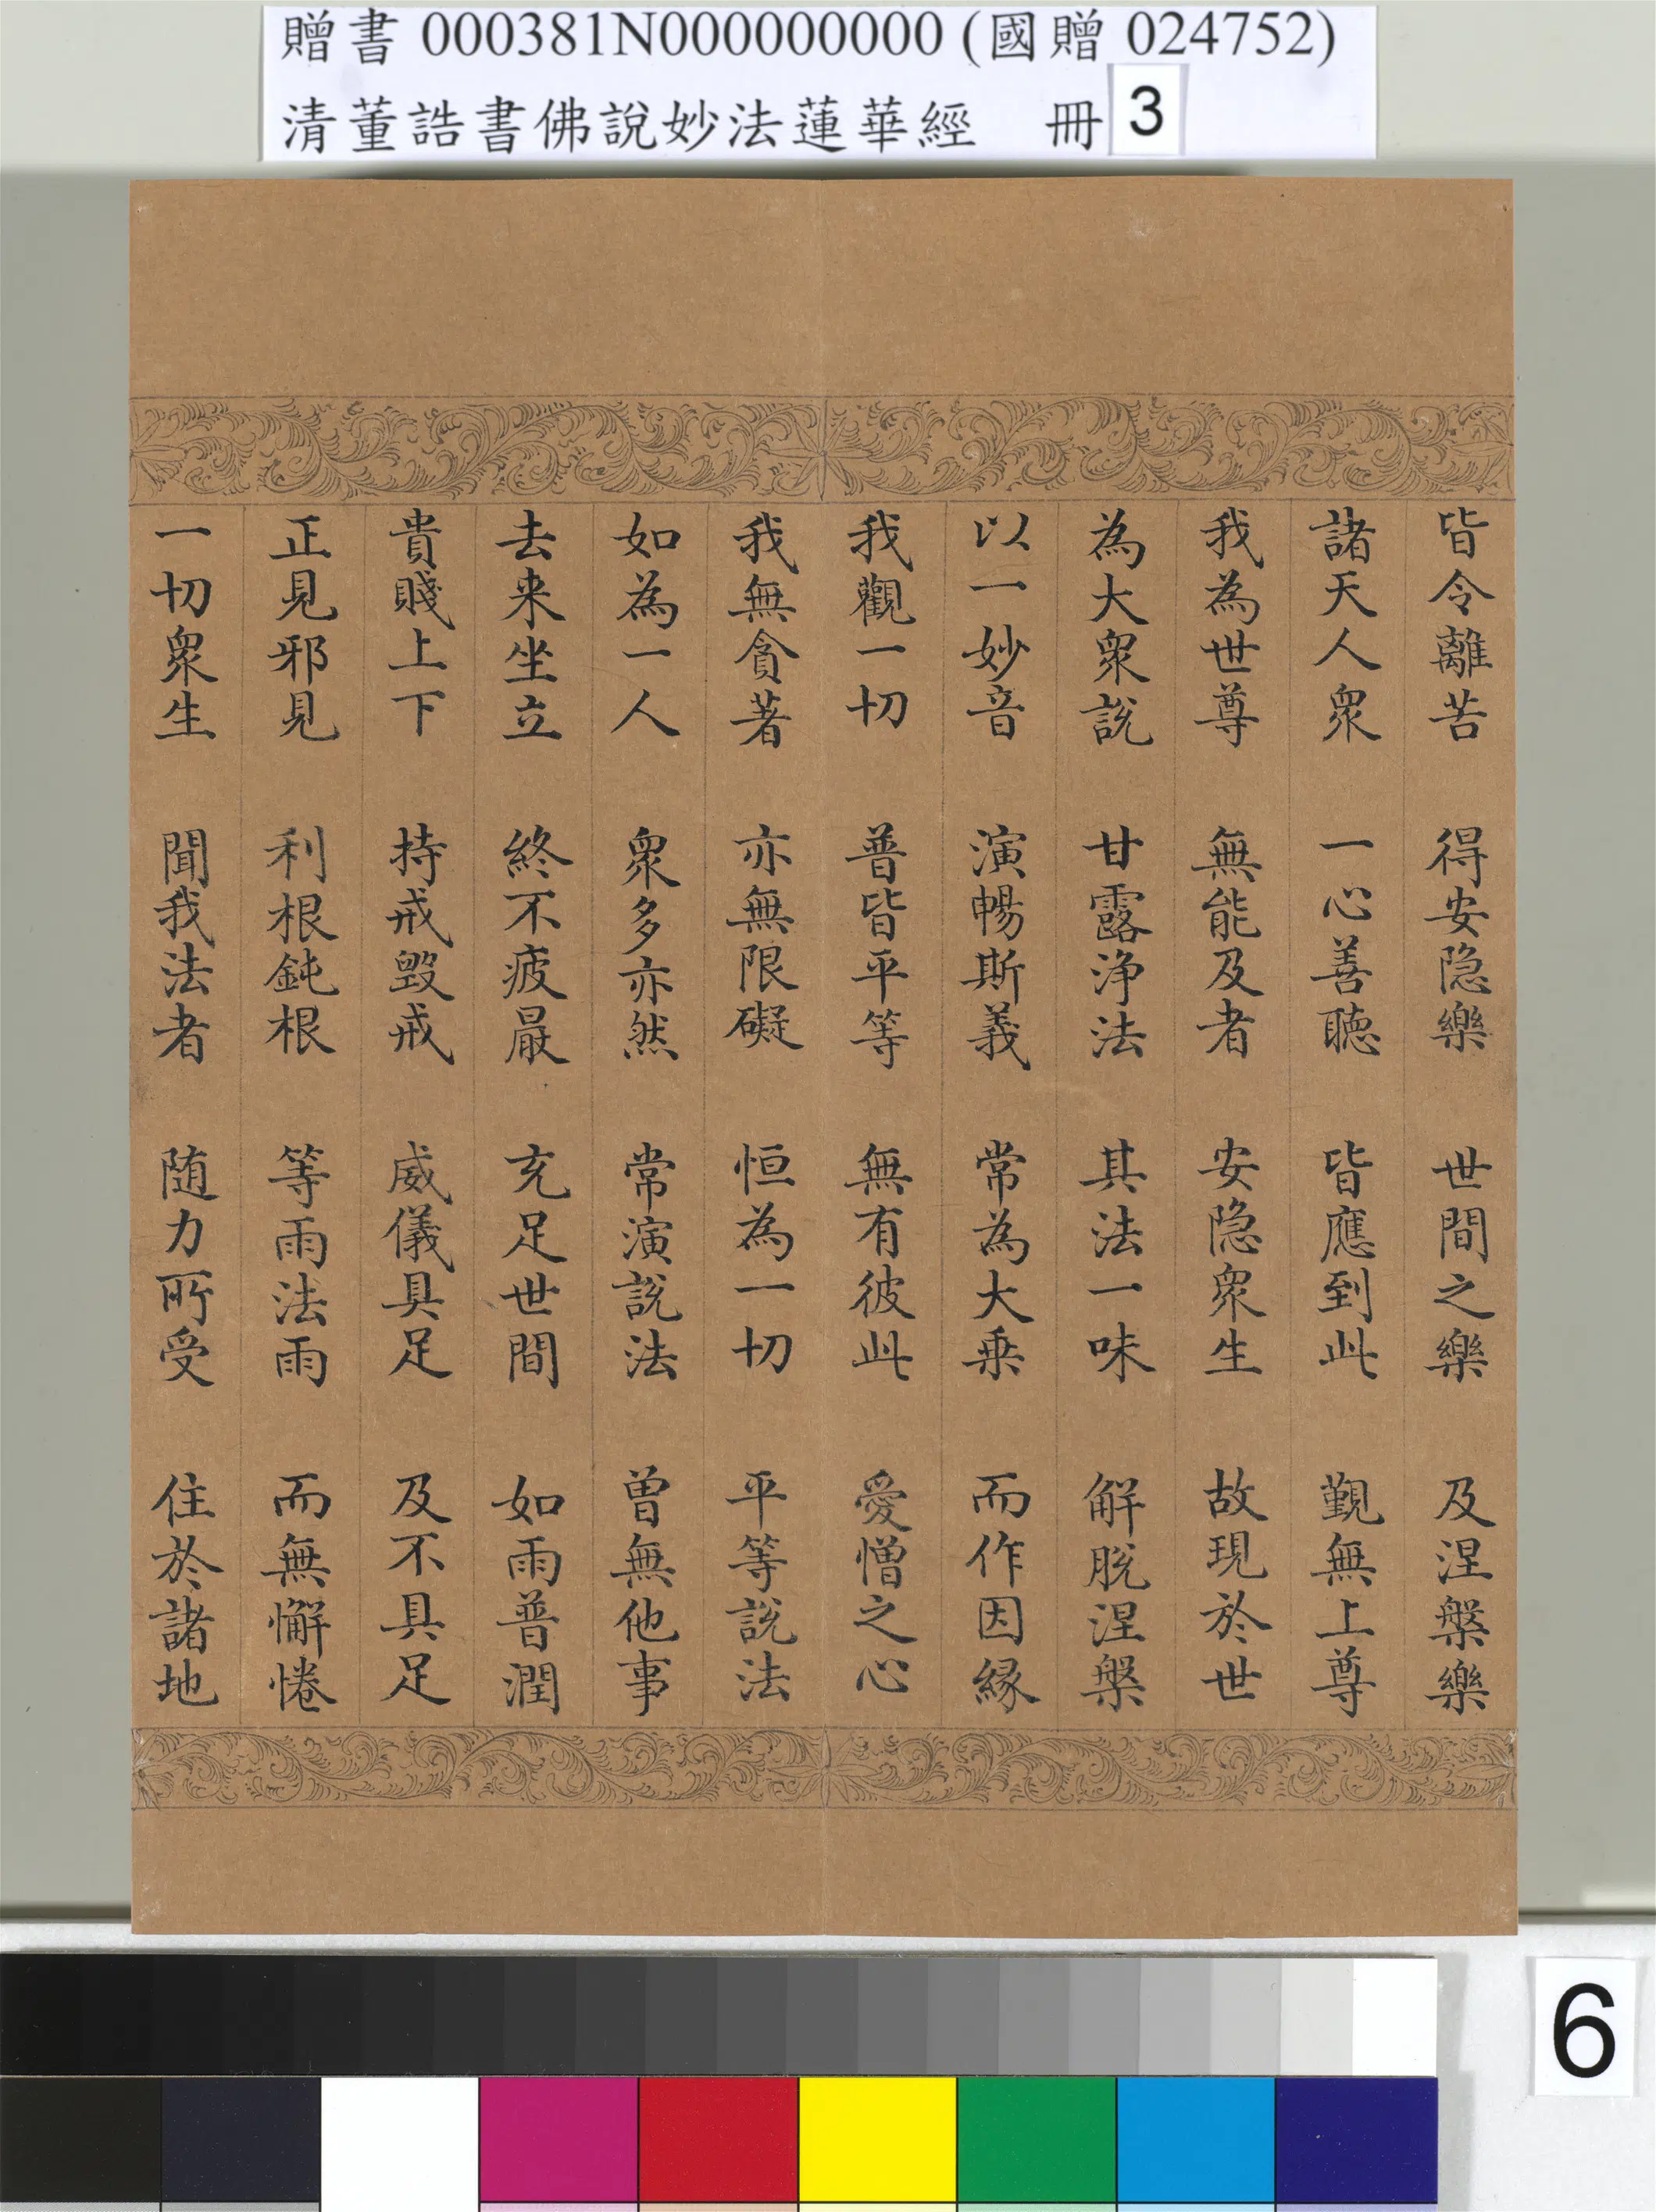 贈書 000381N000000000 (國贈 024752)
清董誥書佛說妙法蓮華經 冊 3
皆令離苦 得安隐樂 世間之樂 及涅槃樂
諸天人眾 一心善聽 皆應到此 覲無上尊
我為世尊 無能及者 安隐眾生 故現於世
為大眾說 甘露浄法 其法一味 解脫涅槃
以一妙音 演暢斯義 常為大乗 而作因緣
我觀一切 普皆平等 無有彼此 愛憎之心
我無貪著 亦無限礙 恒為一切 平等說法
如為一人 眾多亦然 常演說法 曽無他事
去来坐立 終不疲厭 充足世間 如雨普潤
貴賤上下 持戒毀戒 威儀具足 及不具足
正見邪見 利根鈍根 等雨法雨 而無懈惓
一切眾生 聞我法者 随力所受 住於諸地
6